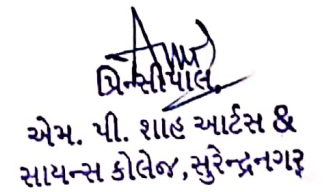 પ્રિન્સીપાલ.
એમ. પી. શાહ આર્ટસ &
સાયન્સ કોલેજ,સુરેન્દ્રનગર